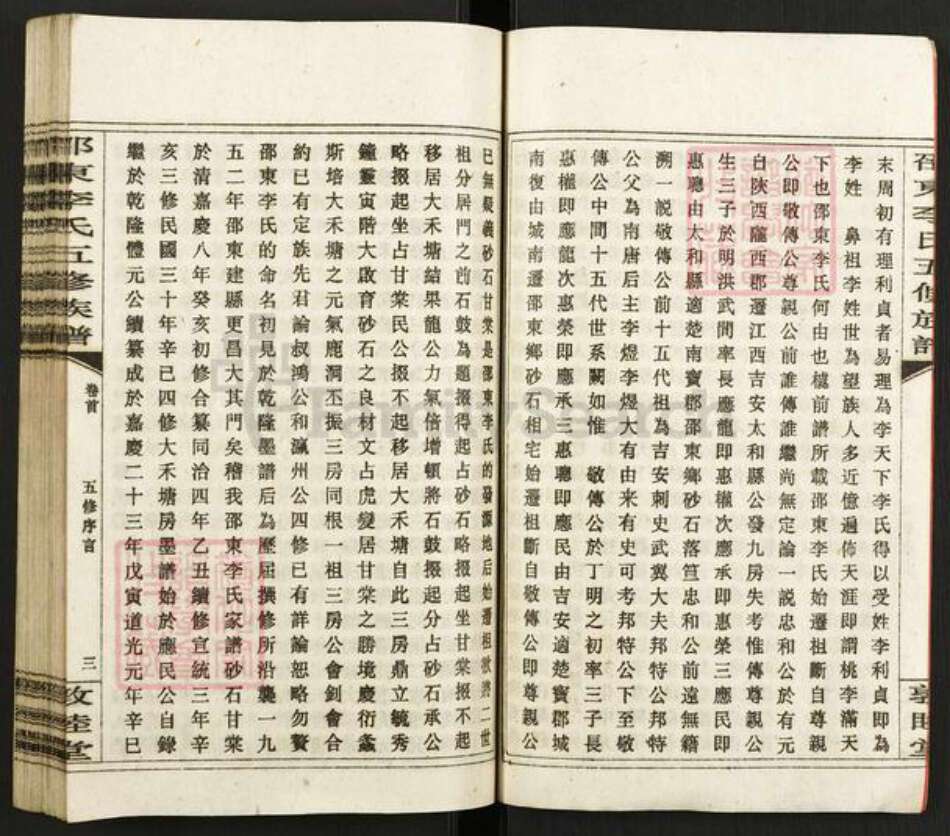 末周初有理利貞者易理為李天下李氏得以受姓李利貞即為
李姓 鼻祖李姓世為望族人多近億遍佈天涯即謂桃李滿天
下也邵東李氏何由也據前譜所載邵東李氏始遷祖斷自尊親
公即敬傳公尊親公前誰傳誰繼尚無定論一説忠和公於有元
自陝西隴西郡遷江西吉安太和縣公發九房失考惟傳尊親公
生三子於明洪武間率長應龍即惠權次應承即惠榮三應民即
惠聰由太和縣適楚南寶郡邵東鄉砂石落笪忠和公前遠無籍
溯一説敬傳公前十五代祖為吉安刺史武翼大夫邦特公邦特
公父為南唐后主李煜李煜大有由来有史可考邦特公下至敬
傳公中間十五代世系闕如惟 敬傳公於丁明之初率三子長
惠權即應龍次惠榮即應承三惠聰即應民由吉安適楚寶郡城
南復由城南遷邵東鄉砂石相宅始遷祖斷自敬傳公即尊親公
已無疑義砂石甘棠是邵東李氏的發源地后始遷祖敬傳二世
祖分居門之前石鼓為題掇得起占砂石略掇起坐甘棠掇不起
移居大禾塘結果龍公力氣倍增頓將石鼓掇起分占砂石承公
略掇起坐占甘棠民公掇不起移居大禾塘自此三房鼎立毓秀
鐘靈寅階大啟育砂石之良材文占虎變居甘棠之勝境慶衍螽
斯培大禾塘之元氣鹿洞丕振三房同根一祖三房公會釗會合
約已有定族先君諭叔鴻公和瀛州公四修已有詳論恕略勿贅
邵東李氏的命名初見於乾隆墨譜后為歷屆撰修所沿襲一九
五二年邵東建縣更昌大其門矣稽我邵東李氏家譜砂石甘棠
於清嘉慶八年癸亥初修合纂同治四年乙丑續修宣統三年辛
亥三修民國三十年辛巳四修大禾塘房墨譜始於應民公自錄
繼於乾隆體元公續纂成於嘉慶二十三年戊寅道光元年辛巳
邵東李氏五修族譜
卷首
五修序言
三
敦睦堂